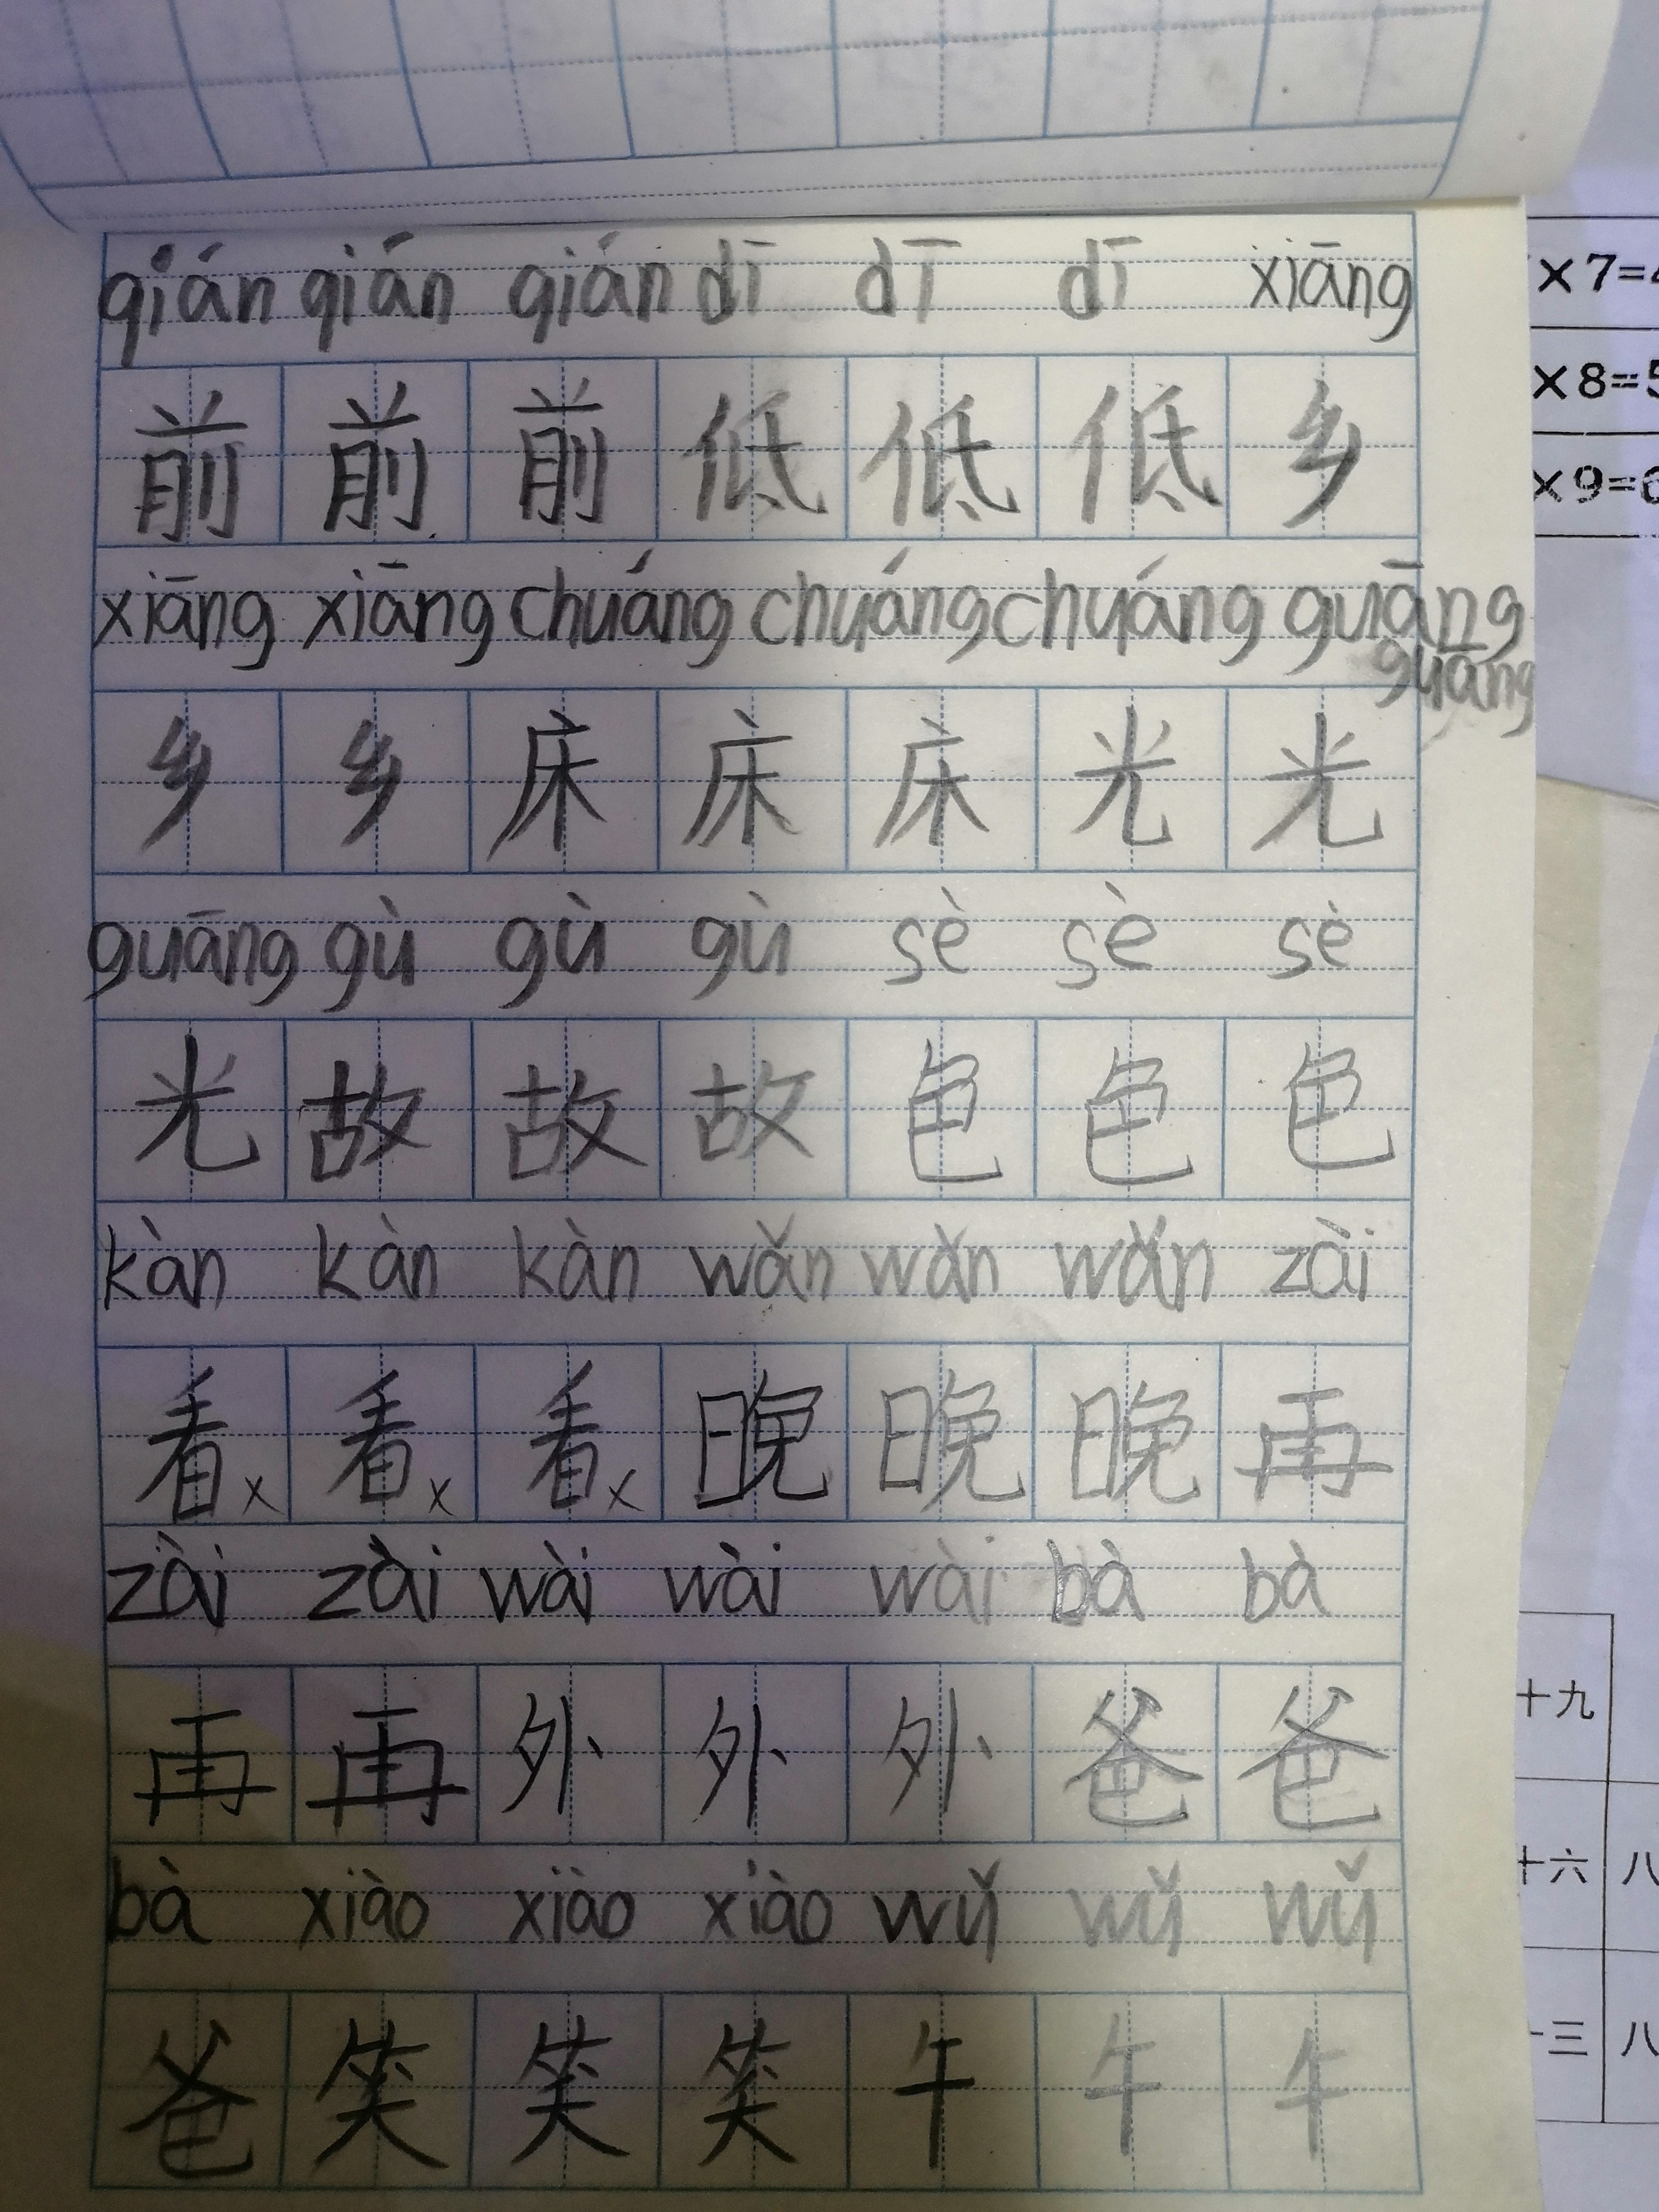 qián qián qián dī dī dī xiāng
前 前 前 低 低 低 乡
xiāng xiāng chuáng chuáng chuáng guāng
guāng
乡 乡 床 床 床 光 光
guāng gù gù gù sè sè sè
光 故 故 故 色 色 色
kàn kàn kàn wǎn wǎn wǎn zài
看 x 看 x 看 x 晚 晚 晚 再
zài zài wài wài wài bà bà
再 再 外 外 外 爸 爸
bà xiào xiào xiào wǔ wǔ wǔ
爸 笑 笑 笑 午 午 午
×7=4
×8=5
×9=6
十九
十六 八
十三 八